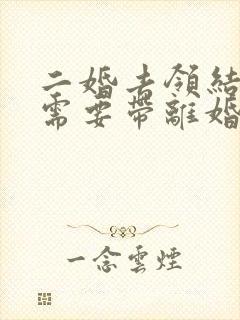 二婚去領結
需要帶離婚
一念雲煙